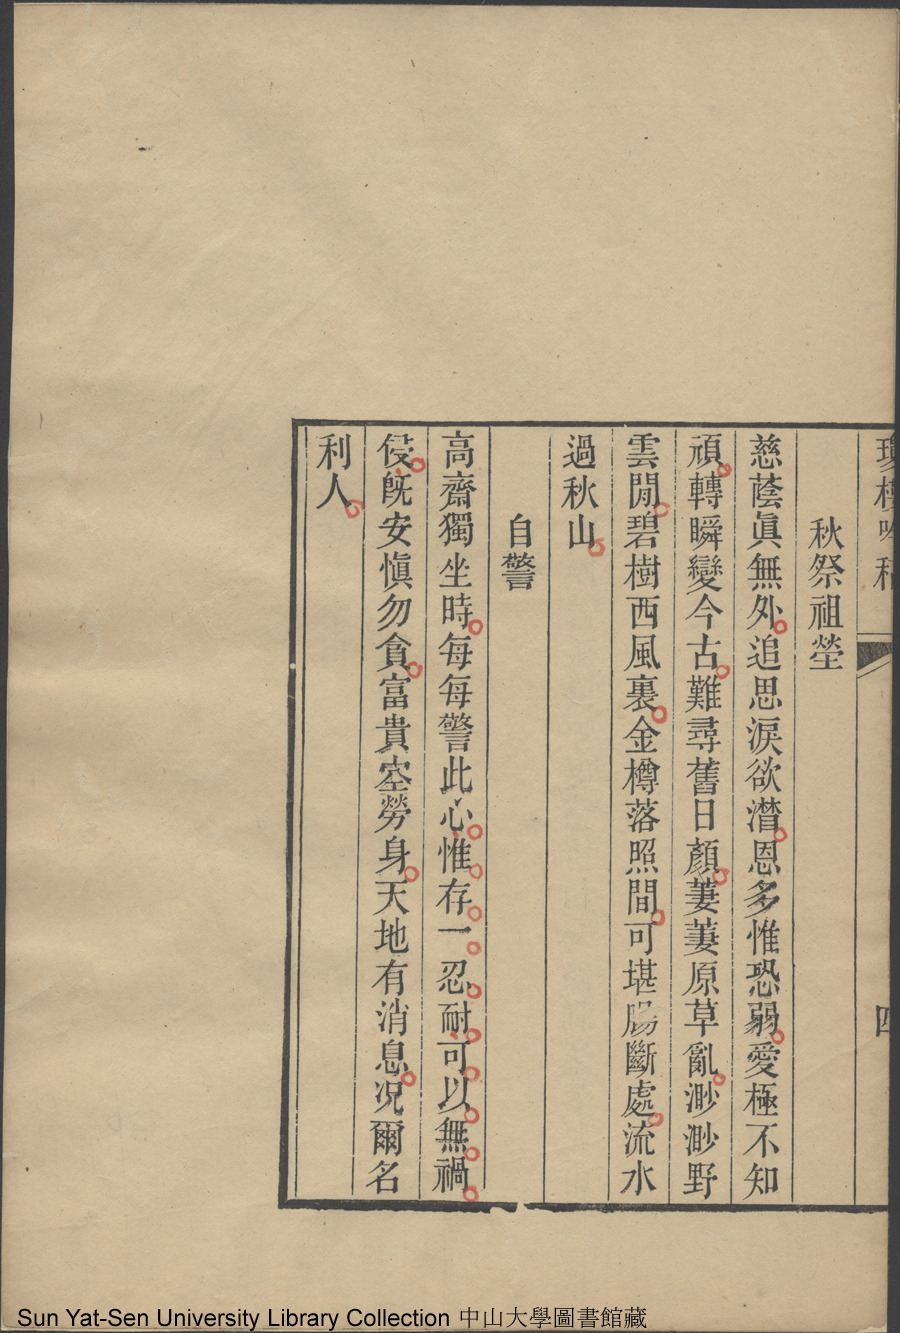 秋祭祖塋
慈蔭眞無外追思淚欲潸恩多惟恐弱愛極不知
頑轉瞬變今古難尋舊日顏萋萋原草亂渺渺野
雲閒碧樹西風裏金樽落照間可堪腸斷處流水
過秋山
自警
高齋獨坐時每每警此心惟存一忍耐可以無禍
侵旣安愼勿貪富貴空勞身天地有消息况爾名
利人
Sun Yat-Sen University Library Collection 中山大學圖書館藏